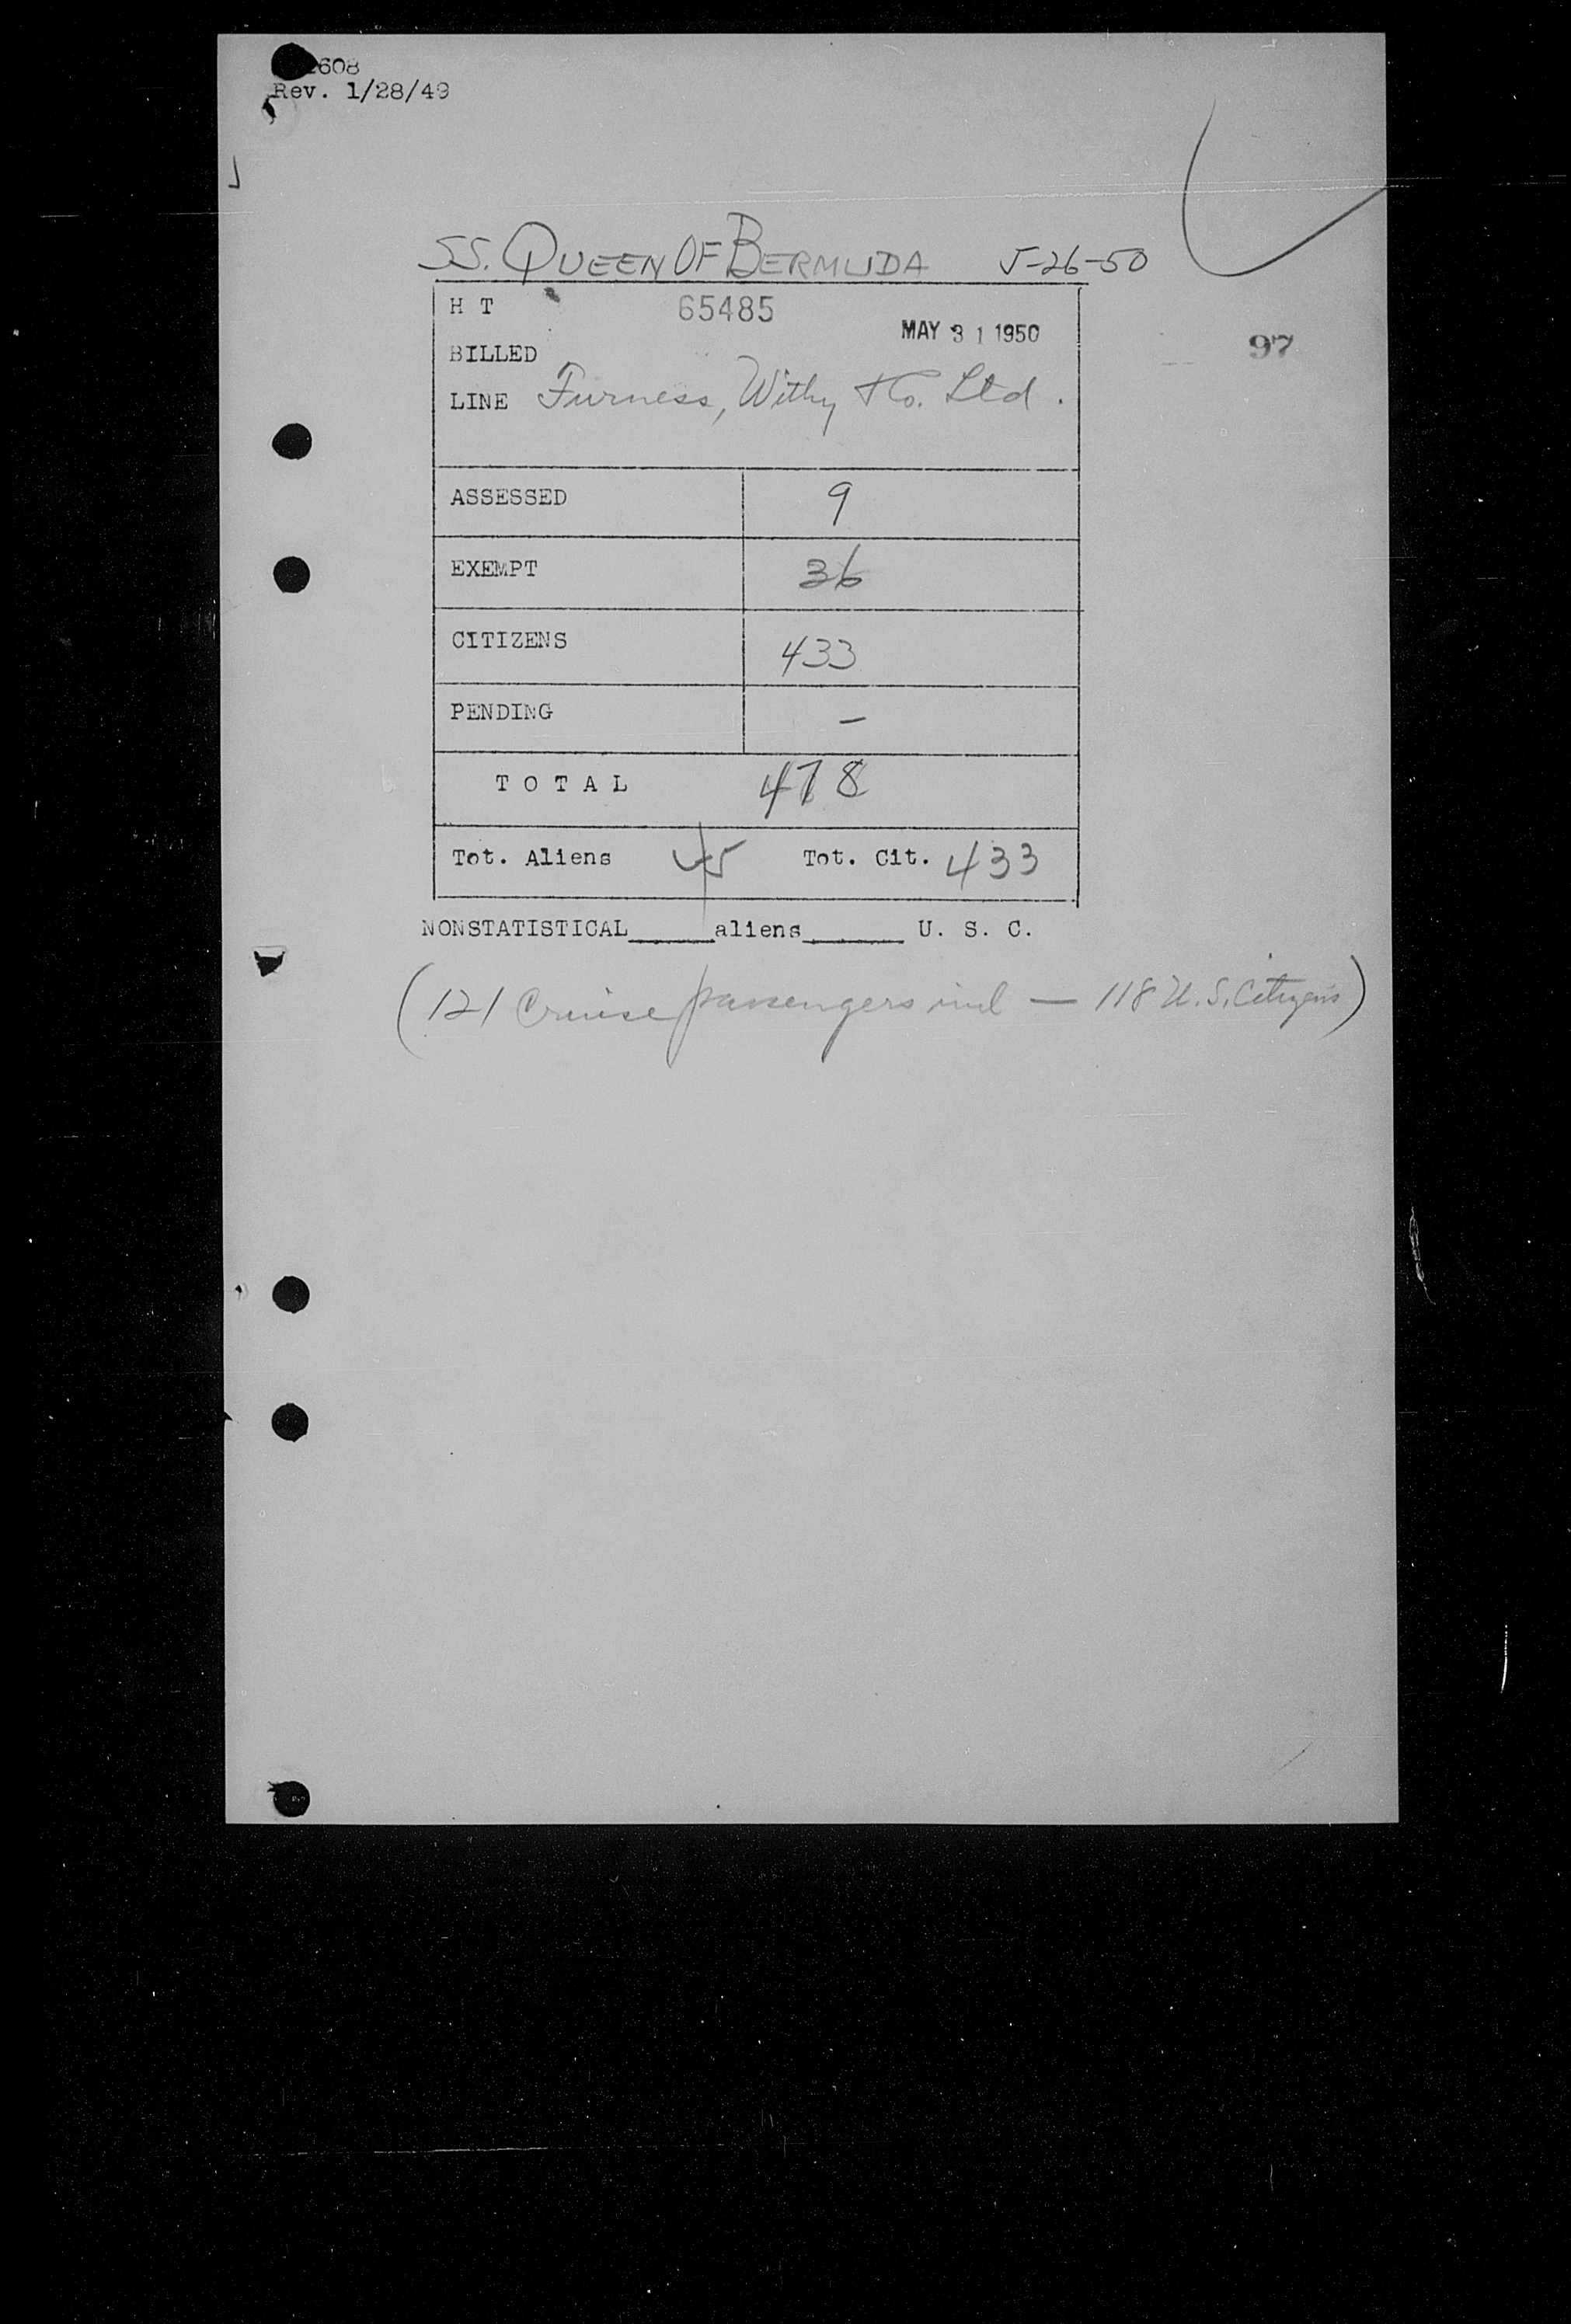 608
Rev. 1/28/49
SS. QUEEN OF BERMUDA 5-26-50
H T 65485
MAY 31 1950
97
BILLED
LINE Furness, Withy & Co. Ltd.
ASSESSED 9
EXEMPT 36
CITIZENS 433
PENDING —
TOTAL 478
Tot. Aliens 45 Tot. Cit. 433
NONSTATISTICAL______aliens_______ U. S. C.
(121 Cruise passengers incl — 118 U.S. Citizens)